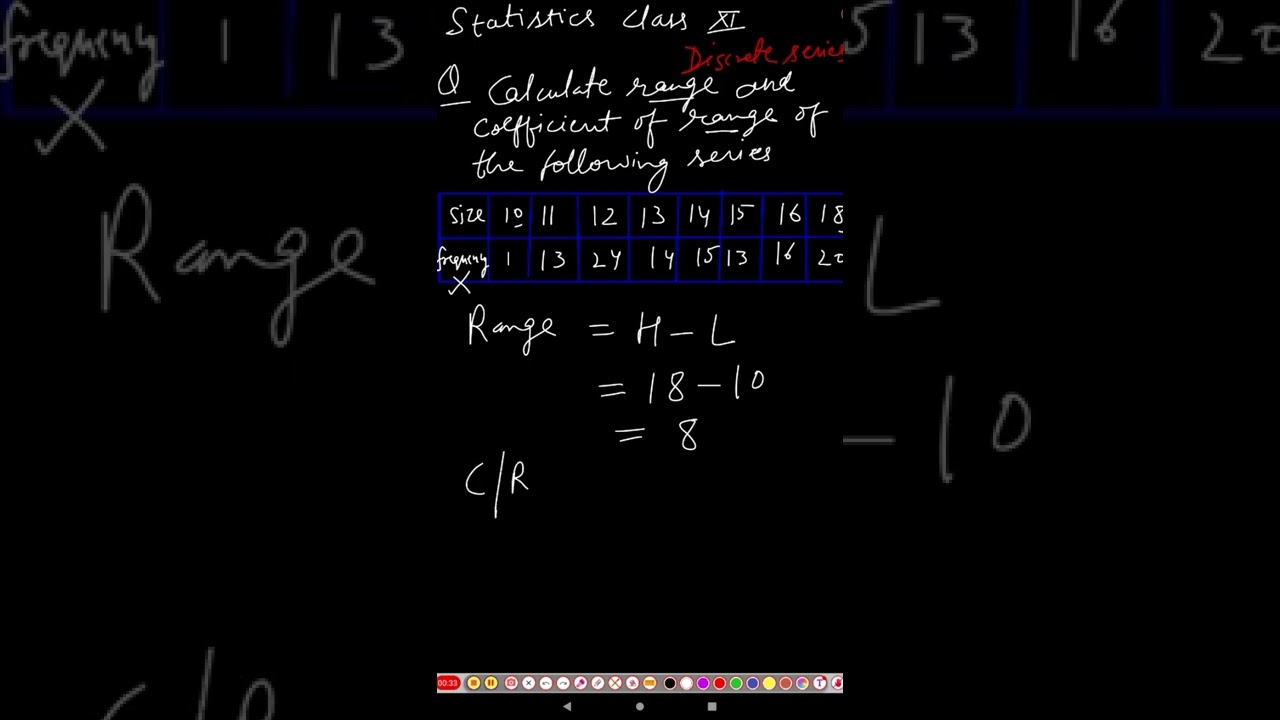 Statistics Class XI
Discrete series
Q Calculate range and
coefficient of range of
the following series
size 10 11 12 13 14 15 16 18
frequency 1 13 24 14 15 13 16 20
X
Range = H - L
= 18 - 10
= 8
C/R
00:33
frequency 1 13
X
Range
C/R
5 13 16 20
L
- 10